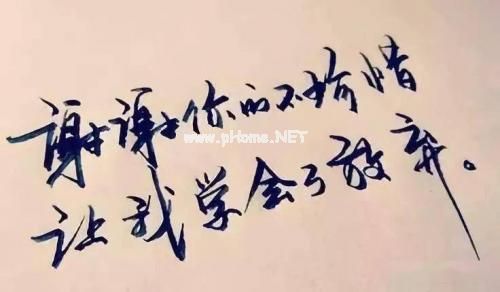 謝謝你的不珍惜
www.pHome.NET
让我学会了放弃。